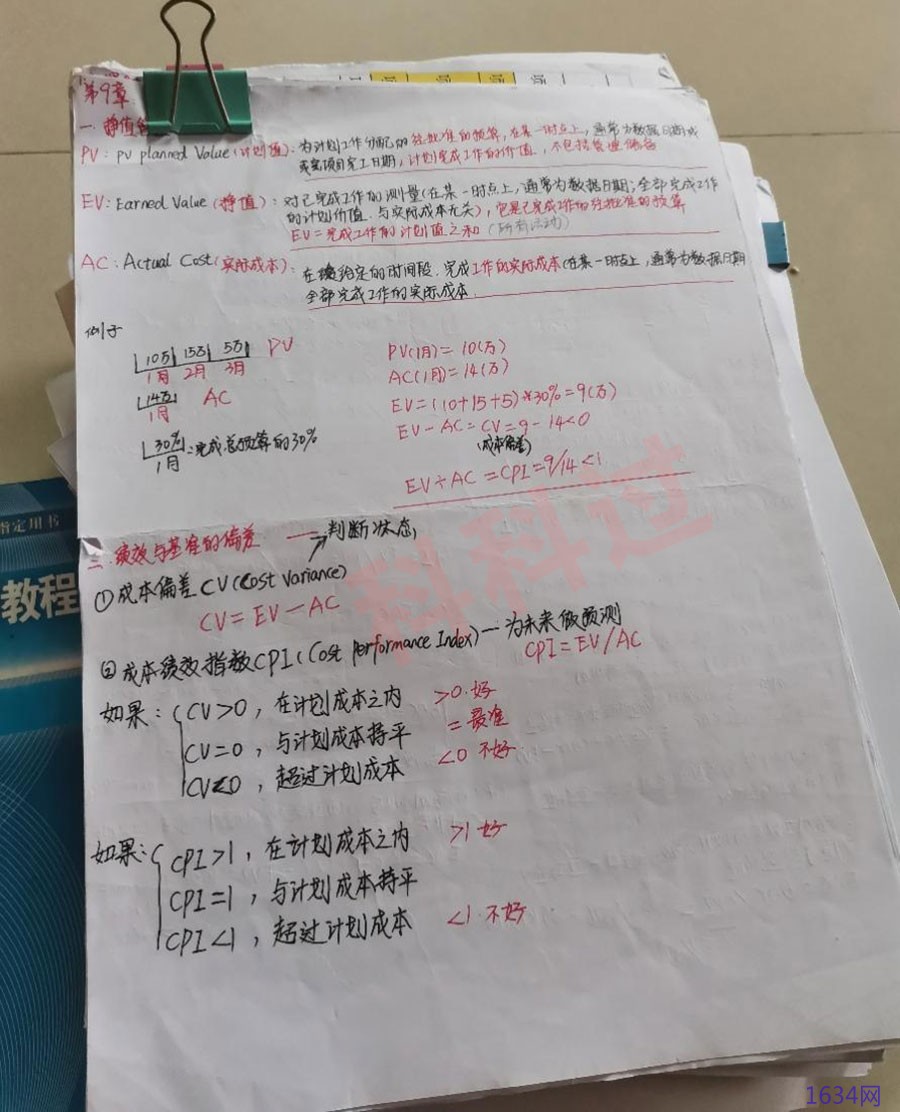 第9章
一.挣值
PV: PV planned Value(计划值): 为计划工作分配的经批准的预算,在某一时点上,通常为数据日期或
项目完工日期,计划完成工作的价值,不包括管理储备
EV: Earned Value (挣值): 对已完成工作的测量(在某一时点上,通常为数据日期;全部完成工作
的计划价值.与实际成本无关),它是已完成工作的经批准的预算
EV=完成工作的计划值之和(所有活动)
AC: Actual Cost(实际成本): 在给定的时间段.完成工作的实际成本(在某一时点上,通常为数据日期
全部完成工作的实际成本.
例子
10万 15万 5万 PV
1月 2月 3月
14万 AC
1月
30% :完成总预算的30%
1月
PV(1月)=10(万)
AC(1月)=14(万)
EV=(10+15+5)*30%=9(万)
EV-AC=CV=9-14<0
(成本偏差)
EV÷AC=CPI=9/14<1
科科过
二.绩效与基准的偏差 判断状态
①成本偏差CV(Cost Variance)
CV=EV-AC
②成本绩效指数CPI(Cost Performance Index)—为未来做预测
CPI=EV/AC
如果: CV>0, 在计划成本之内 >0.好
CV=0, 与计划成本持平 =最准
CV<0, 超过计划成本 <0 不好
如果: CPI>1, 在计划成本之内 >1 好
CPI=1, 与计划成本持平
CPI<1, 超过计划成本 <1.不好
指定用书
教程
1634网